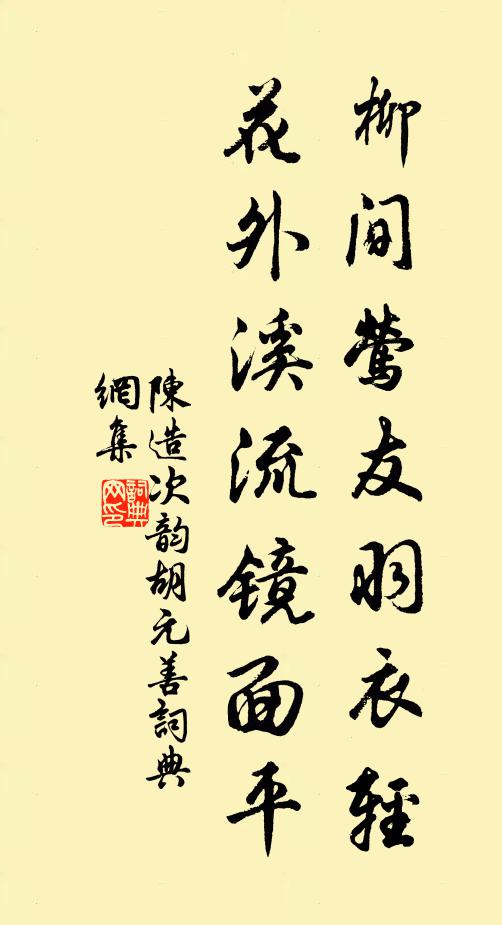 柳间莺友羽衣轻
花外溪流镜面平
陳造次韵胡元善詞典
網集
詞典网印